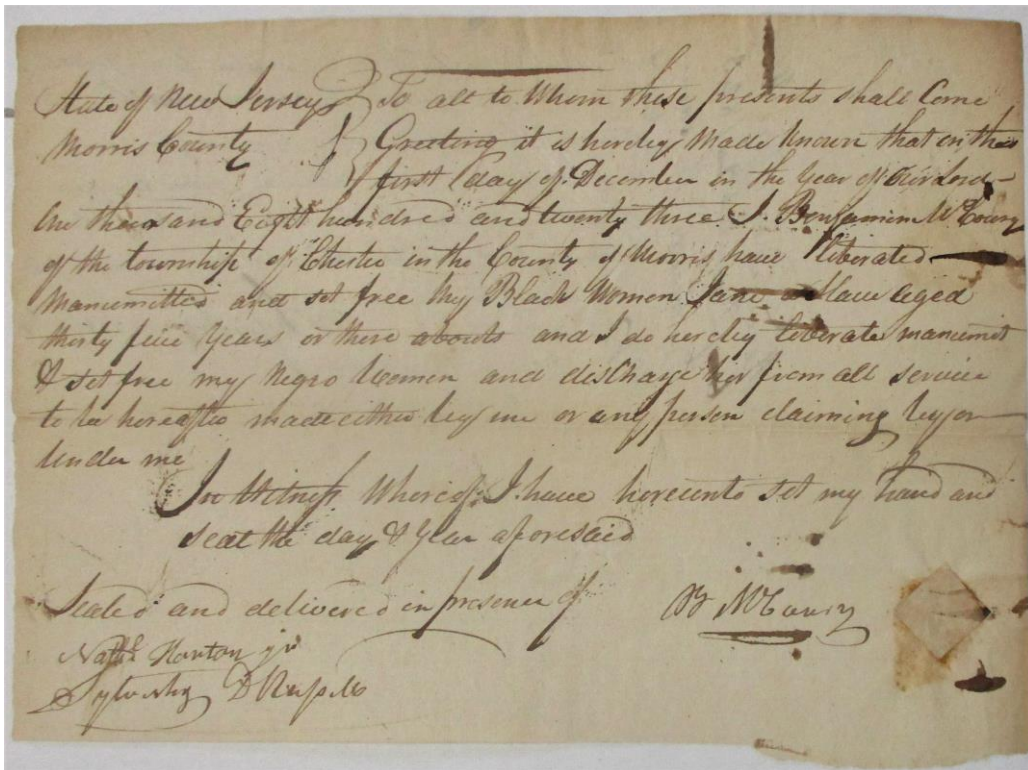 State of New Jersey } To all to Whom these presents shall Come
Morris County } Greeting it is hereby Made known that on this
first day of December in the Year of Our Lord
One thousand Eight hundred and twenty three I Benjamin McCoury
of the township of Chester in the County of Morris have liberated
Manumitted and set free My Black Women Jane a Slave aged
thirty five Years or there abouts and I do hereby liberate manumit
& set free my Negro Women and discharge her from all service
to be hereafter made either by me or any person claiming by or
Under me
In Witness Whereof I have hereunto set my hand and
seal the day & Year aforesaid
Sealed and delivered in presence of B McCoury
Nathl Horton jr
D